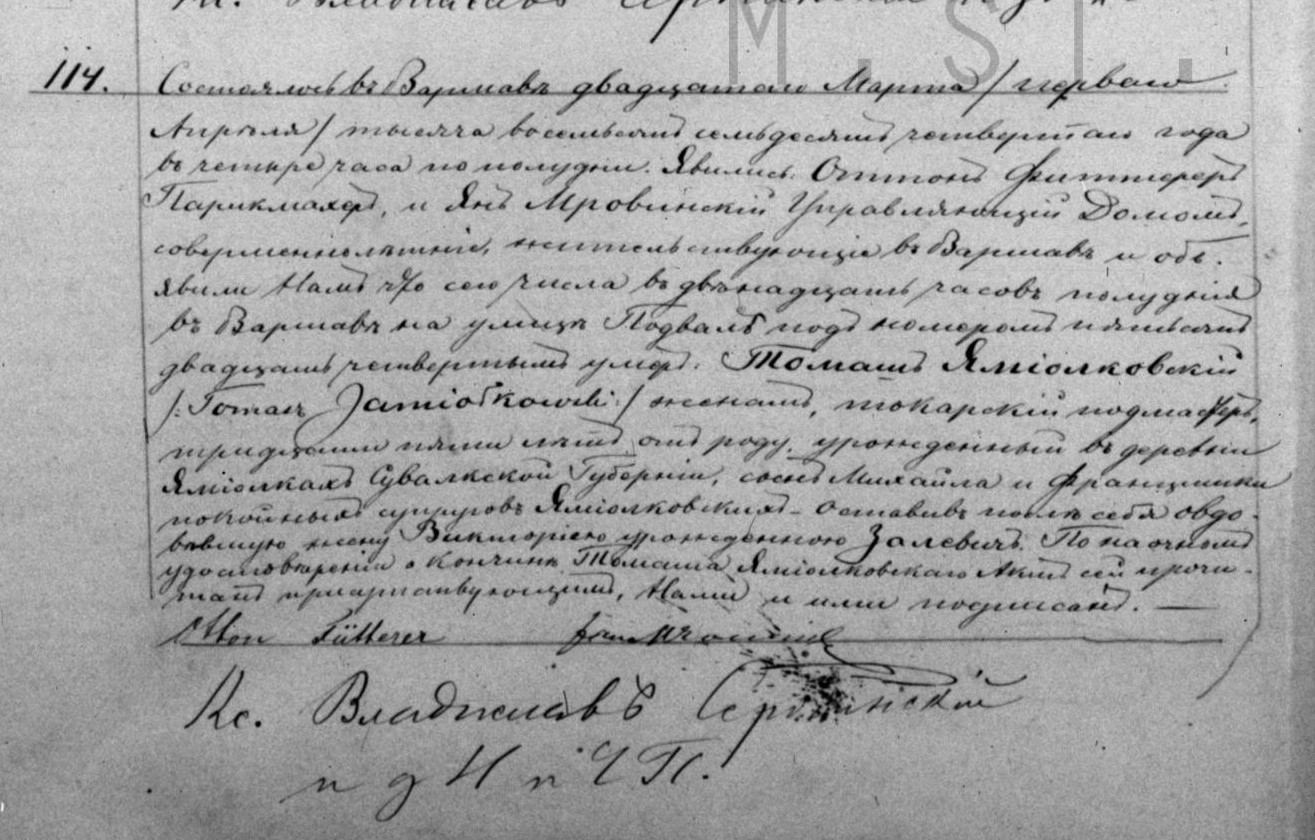 M. S. I.
114.
Состоялось въ Варшавѣ двадцатаго Марта / перваго
Апрѣля / тысяча восемьсотъ семьдесятъ четвертаго года
въ четыре часа по полудни. Явились: Оттонъ Фиттереръ
Парикмахеръ, и Янъ Мровинскій Управляющій Домомъ,
совершеннолѣтніе, жительствующіе въ Варшавѣ и объ-
явили Намъ что сего числа въ двѣнадцать часовъ полудня
въ Варшавѣ на улицѣ Подвалъ подъ номеромъ пятьсотъ
двадцать четвертымъ умеръ: Томашъ Яміолковскій
/: Tomasz Jamiołkowski :/ женатъ, токарскій подмастеръ,
тридцати пяти лѣтъ отъ роду, урожденный въ деревнѣ
Яміолкахъ Сувалкской Губерніи, сынъ Михайла и Францишки
покойныхъ супруговъ Яміолковскихъ - Оставивъ послѣ себя овдо-
вѣвшую жену Викторію урожденную Залевичъ. По наочномъ
удостовѣреніи о кончинѣ Томаша Яміолковскаго Актъ сей прочи-
танъ присутствующимъ, Нами и ими подписанъ. —
Otton Fütterer Jan Mrowinski
Кс. Владиславъ
п д Н п Ч П.